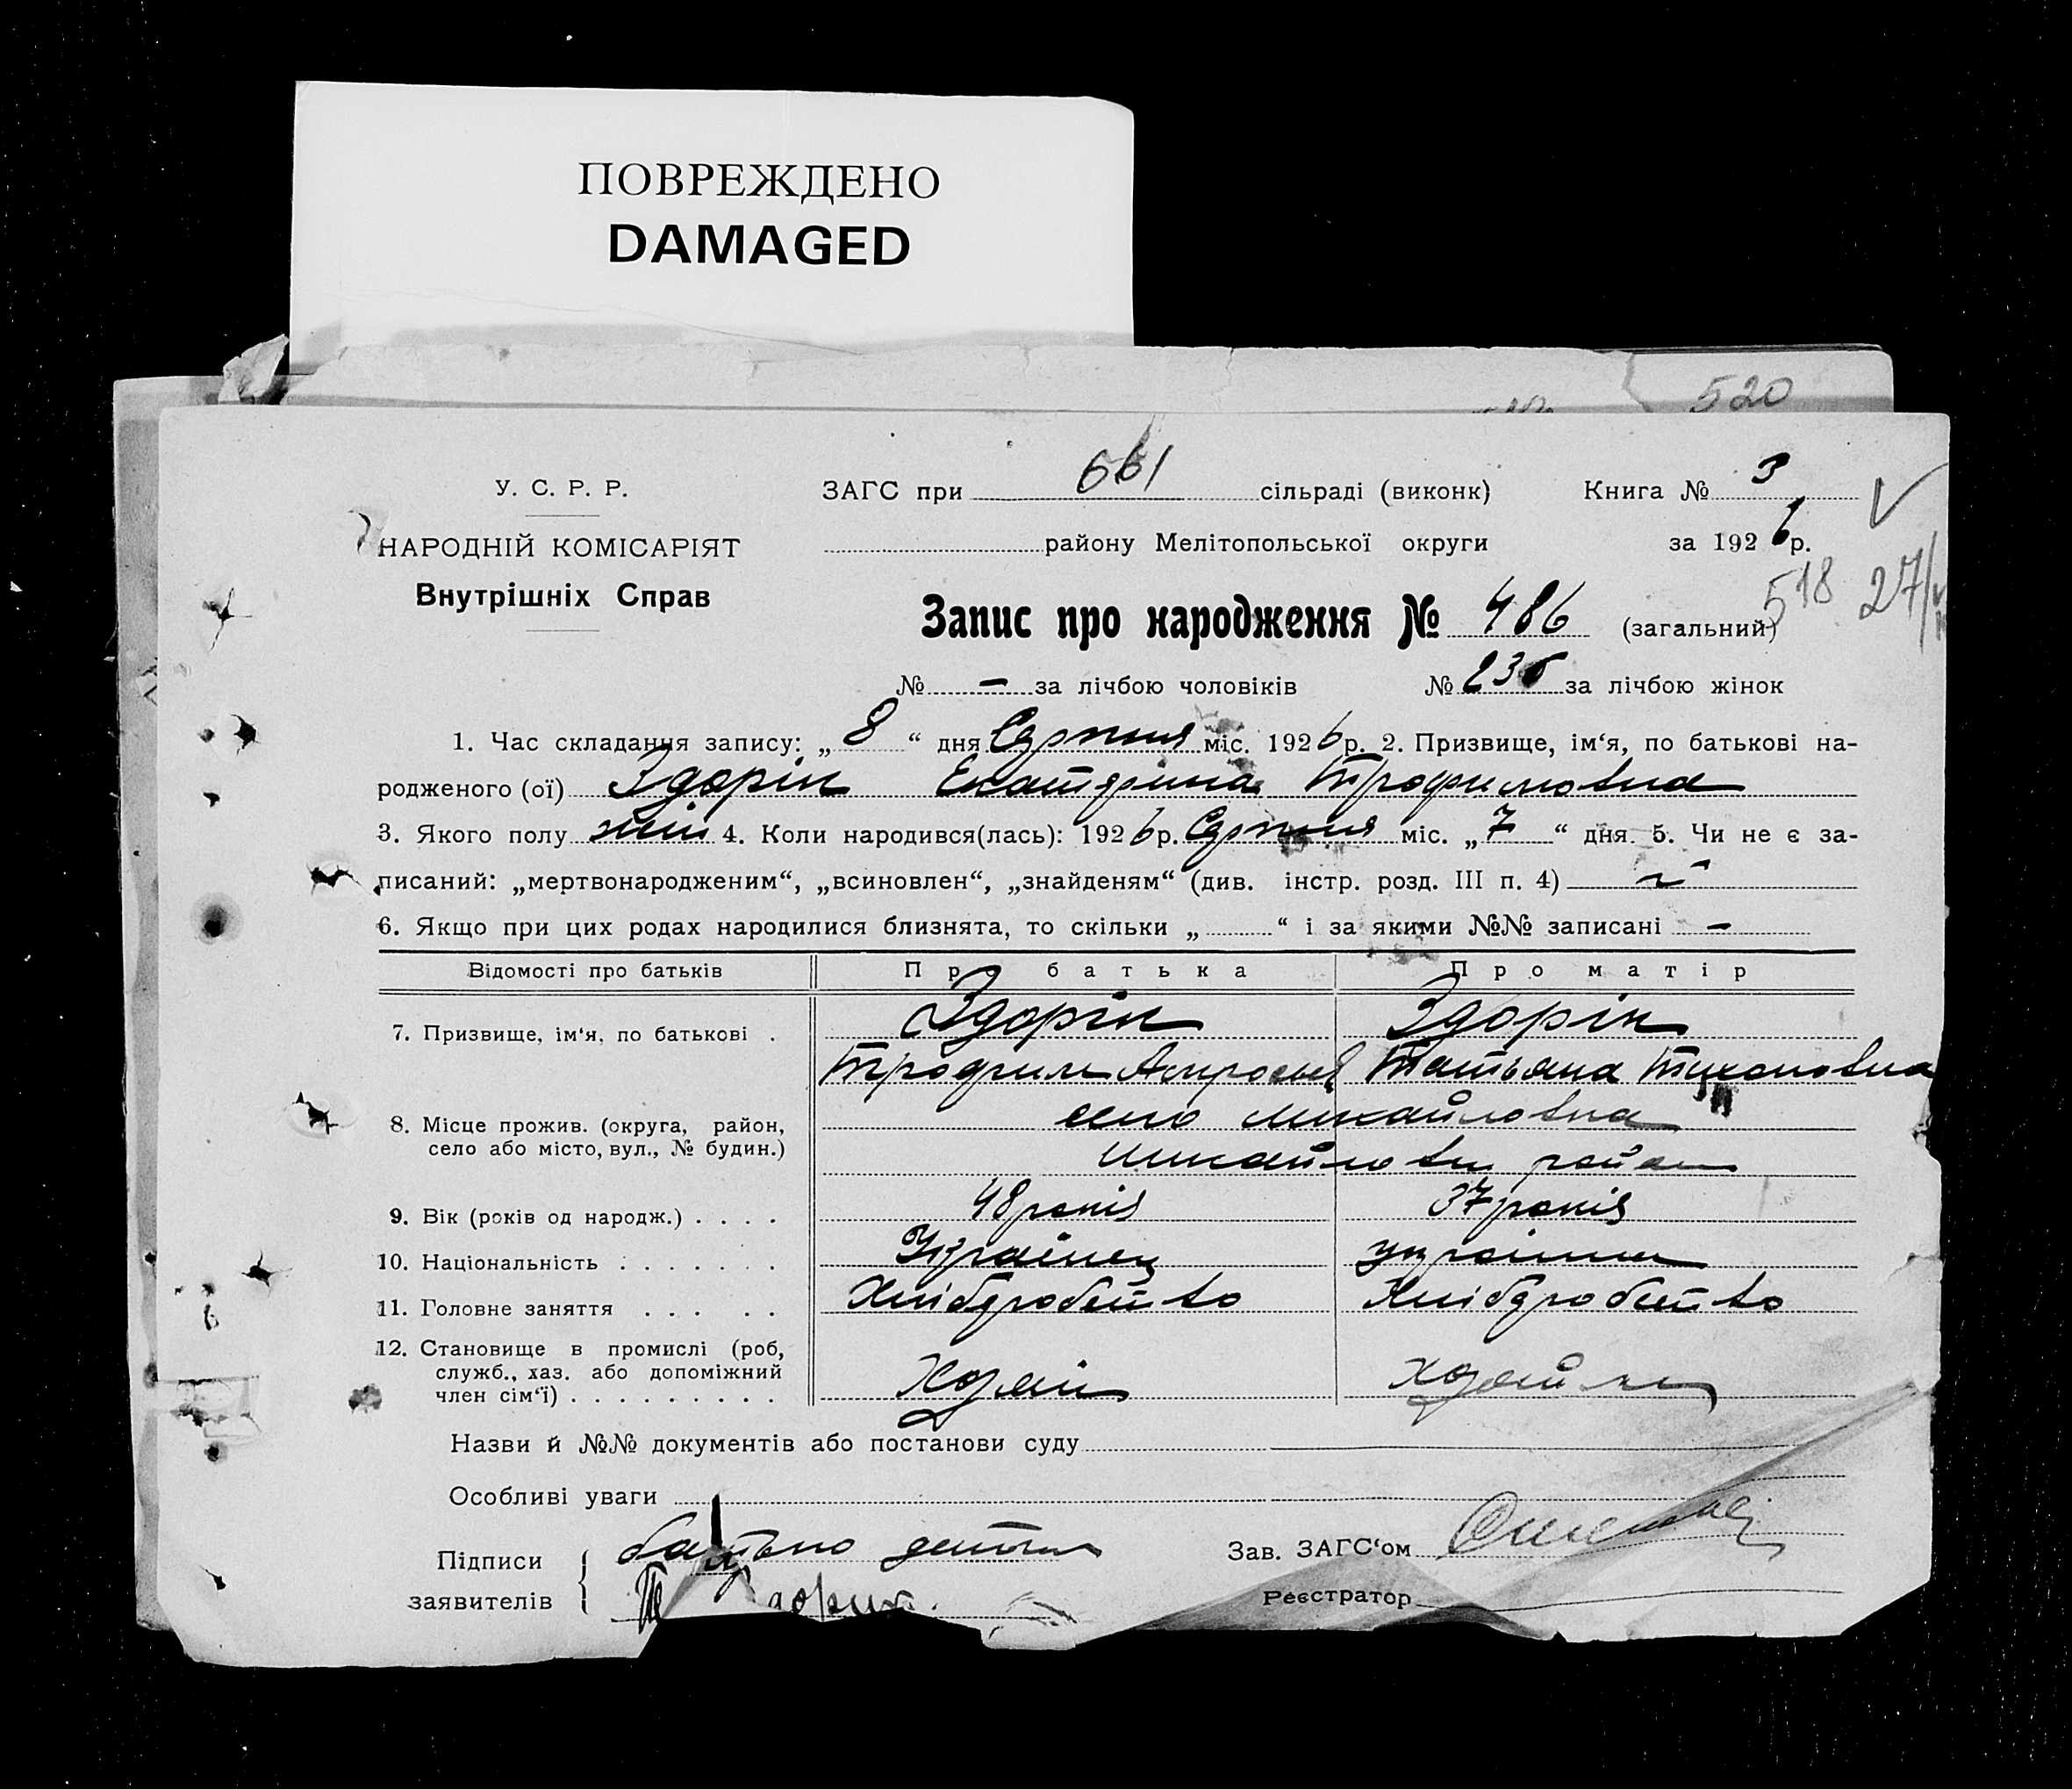 ПОВРЕЖДЕНО
DAMAGED
520
У. С. Р. Р.
НАРОДНІЙ КОМІСАРІЯТ
Внутрішніх Справ
ЗАГС при 661 сільраді (виконк) Книга № 3
району Мелітопольської округи за 1926 р.
518 27/
Запис про народження № 486 (загальний)
№ – за лічбою чоловіків № 236 за лічбою жінок
1. Час складання запису: „8“ дня Серпня міс. 1926 р. 2. Призвище, ім‘я, по батькові на-
родженого (ої) Здорік Екатеріна Трофимовна
3. Якого полу жін 4. Коли народився(лась): 1926 р. Серпня міс. „7“ дня. 5. Чи не є за-
писаний: „мертвонародженим“, „всиновлен“, „знайденям“ (див. інстр. розд. III п. 4)
6. Якщо при цих родах народилися близнята, то скільки „ “ і за якими №№ записані –
Відомості про батьків Про батька Про матір
7. Призвище, ім‘я, по батькові . Здорік Здорік
Трофим Татьяна Тихоновна
8. Місце прожив. (округа, район, село або місто, вул., № будин.) село Михайловка
район
9. Вік (років од народж.) . . . . 48 років 37 років
10. Національність . . . . . . . Українец українка
11. Головне заняття . . . . . Хлібаробство Хлібаробство
12. Становище в промислі (роб, служб., хаз. або допоміжний член сім‘ї) . . . . . . . . . Хозяін хозяйка
Назви й №№ документів або постанови суду
Особливі уваги
Підписи заявителів { батько
Зав. ЗАГС‘ом
Реєстратор